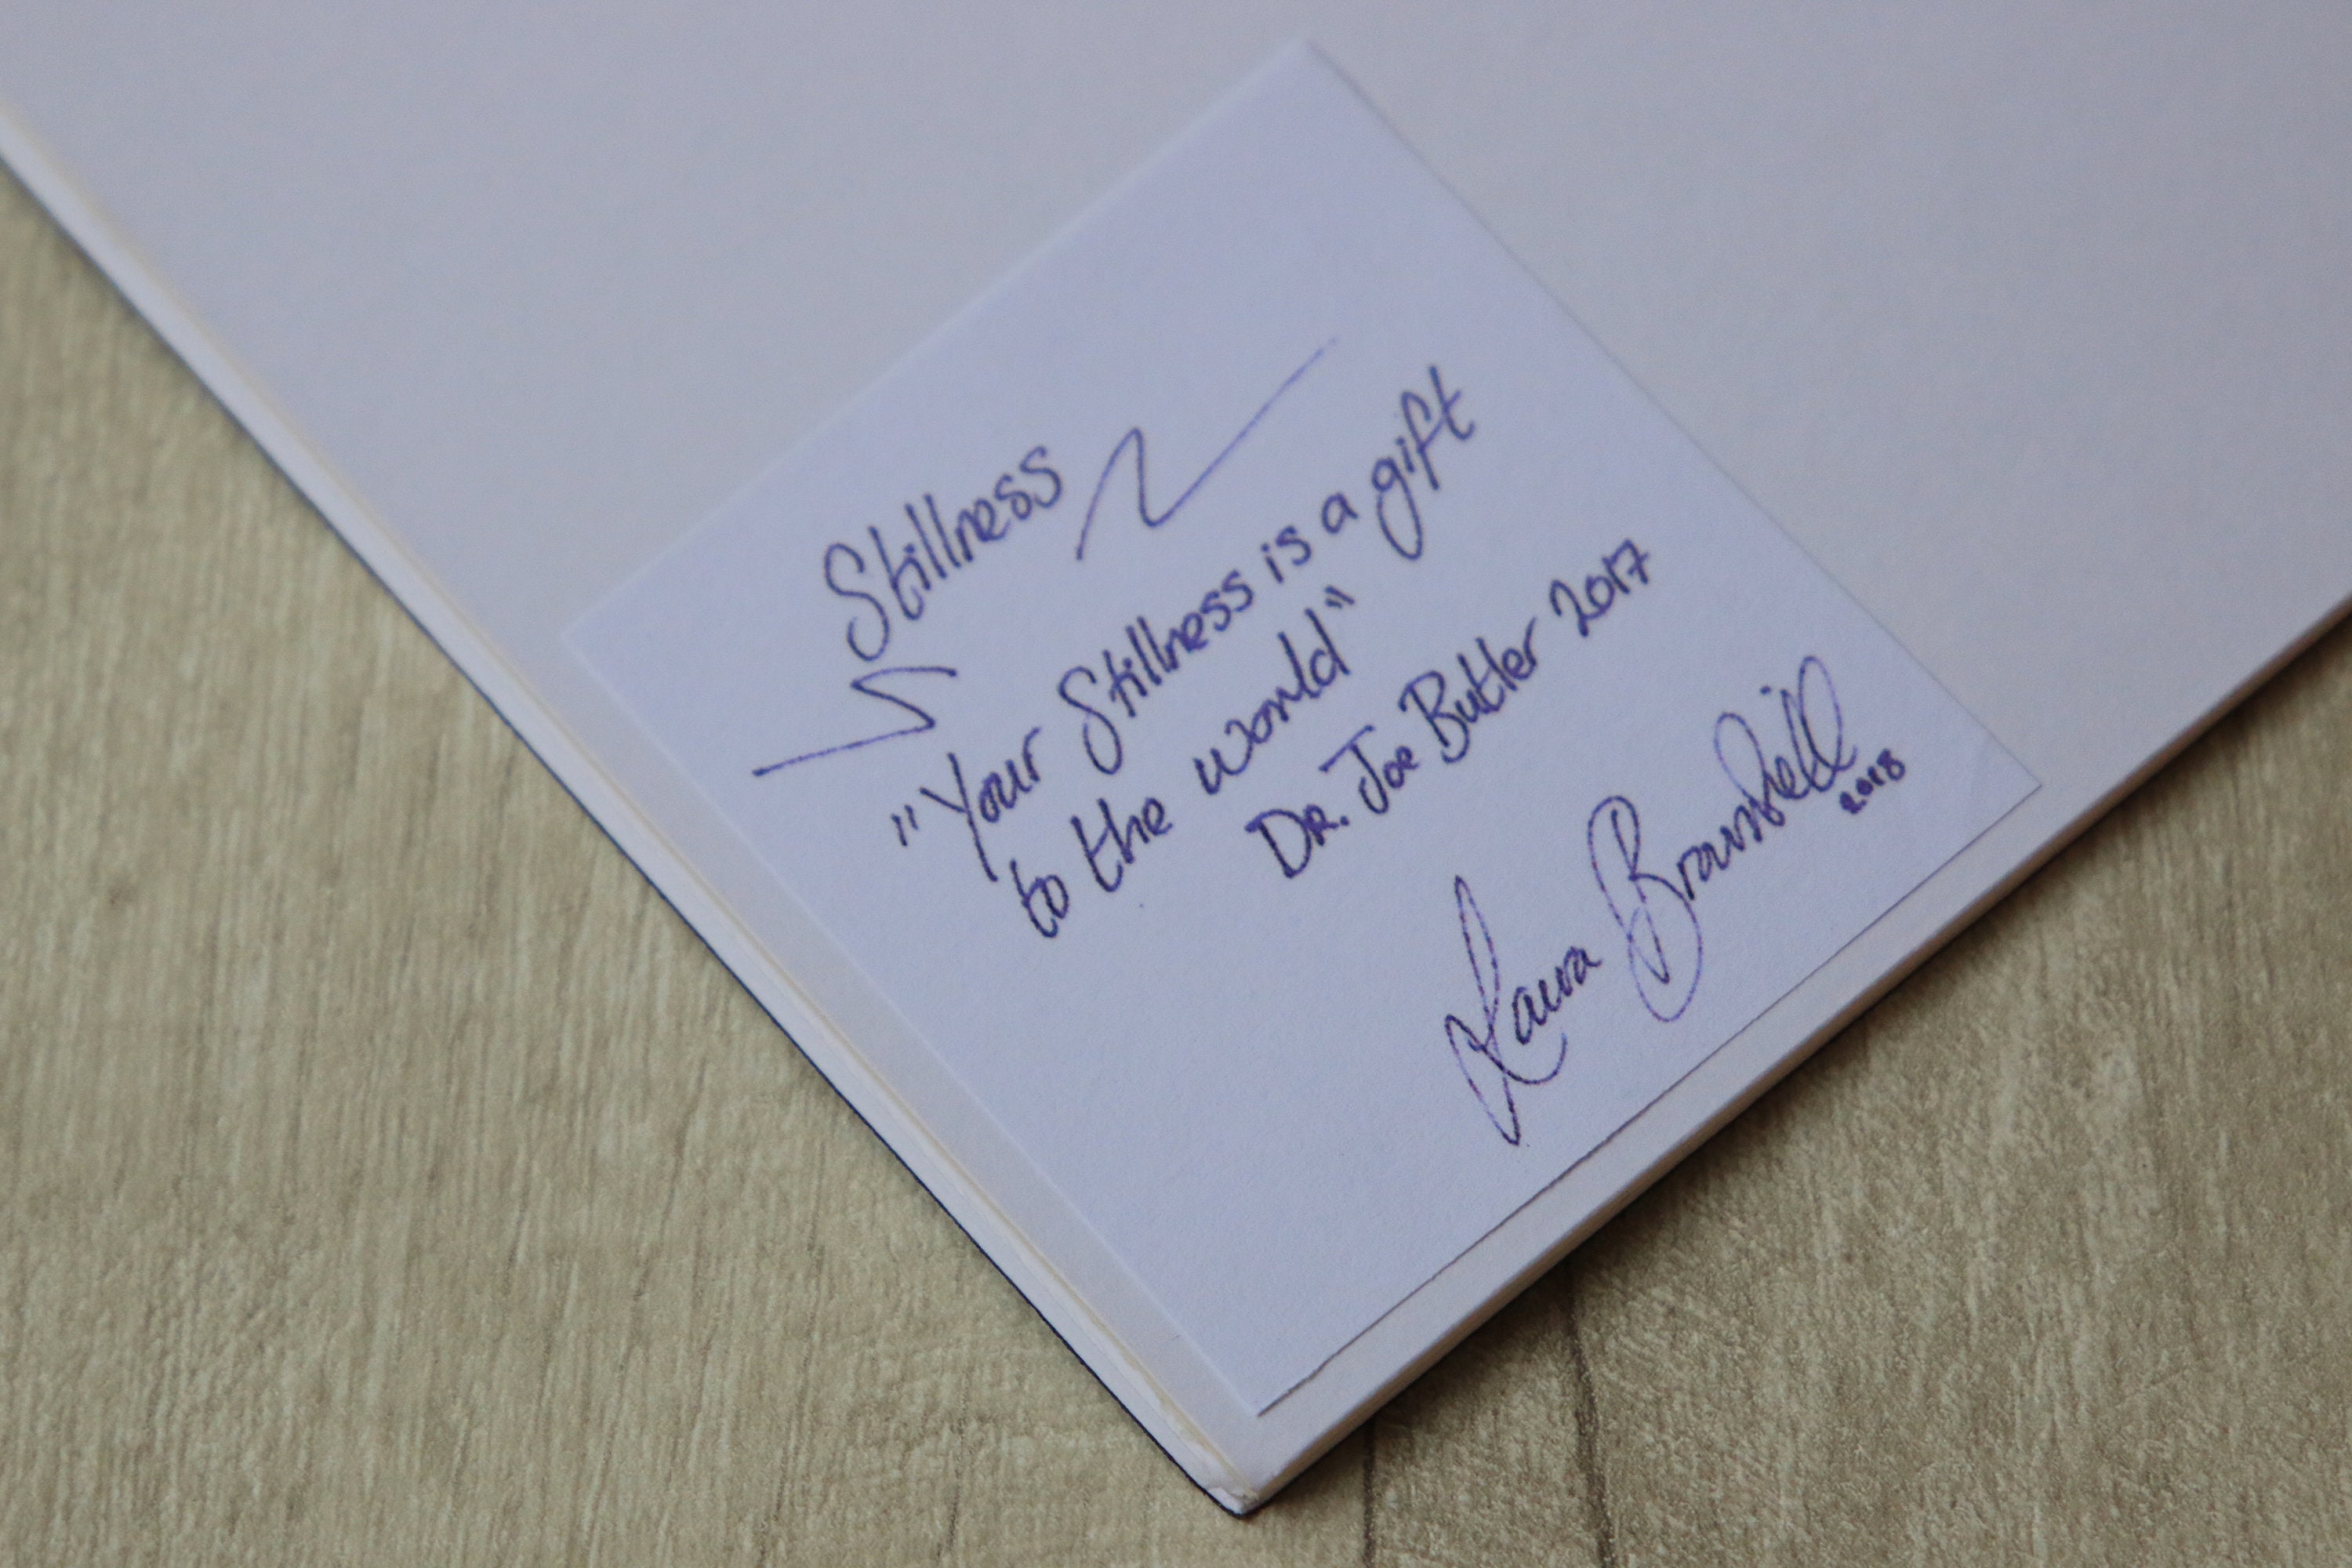 Stillness
"Your Stillness is a gift
to the world"
Dr. Joe Butler 2017
Laura
2018